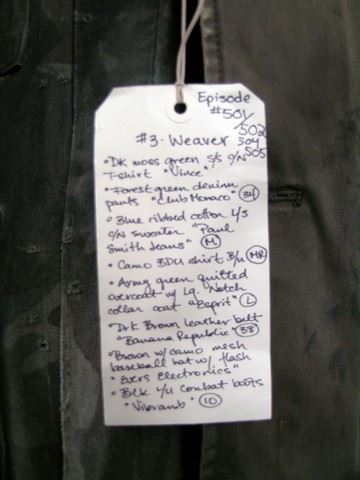 Episode
#501/
502
504
505
#3. Weaver
• Dk moss green s/s S/N
T-shirt "Vince"
• Forest green denim
pants "Club Monaco" 34
• Blue ribbed cotton L/s
S/N sweater "Paul
Smith Jeans" M
• Camo BDU shirt B/u MR
• Army green quilted
overcoat w/ Lg. Notch
collar coat "Esprit" L
• Drk Brown leather belt
"Banana Republic" 38
• Brown w/ camo mesh
baseball hat w/ flash
"Evers Electronics"
• Blk L/u Combat boots
"Vibram" 10